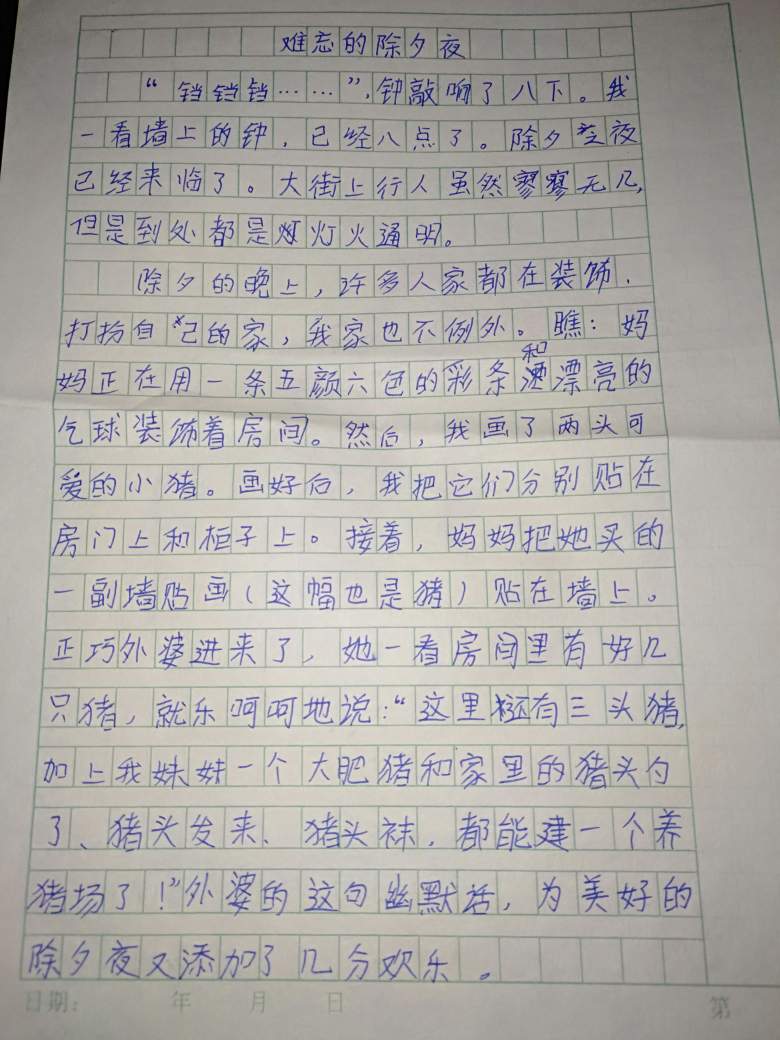 难忘的除夕夜
“铛铛铛……”,钟敲响了八下。我
一看墙上的钟,已经八点了。除夕之夜
已经来临了。大街上行人虽然寥寥无几,
但是到处都是灯火通明。
除夕的晚上,许多人家都在装饰.
打扮自己的家,我家也不例外。瞧:妈
妈正在用一条五颜六色的彩条和漂亮的
气球装饰着房间。然后,我画了两头可
爱的小猪。画好后,我把它们分别贴在
房门上和柜子上。接着,妈妈把她买的
一副墙贴画(这幅也是猪)贴在墙上。
正巧外婆进来了,她一看房间里有好几
只猪,就乐呵呵地说:“这里还有三头猪,
加上我妹妹一个大肥猪和家里的猪头勺
了、猪头发来、猪头袜.都能建一个养
猪场了!”外婆的这句幽默话,为美好的
除夕夜又添加了几分欢乐。
日期: 年 月 日
第